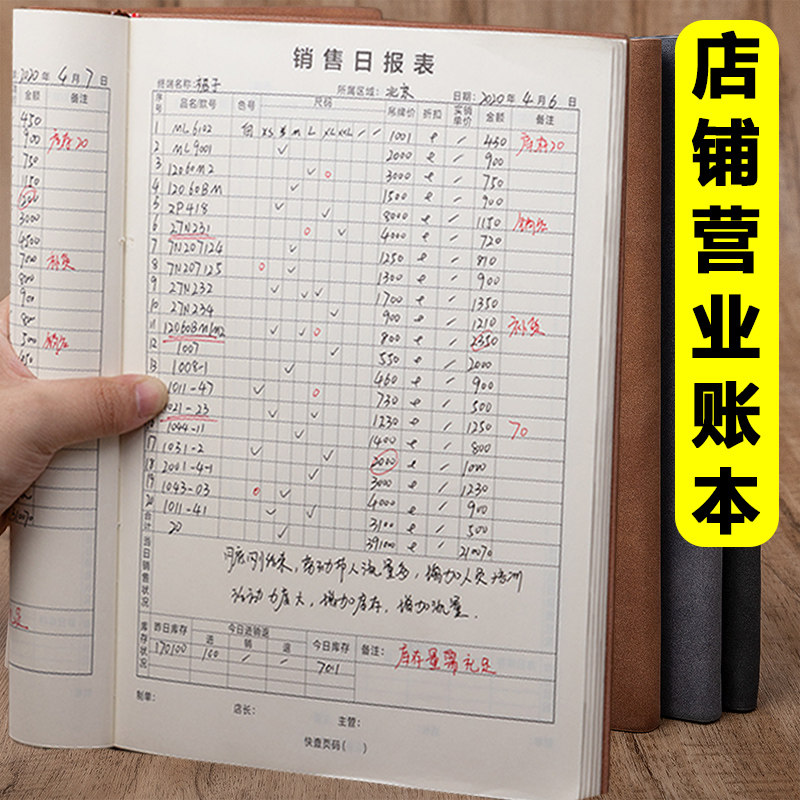 店铺营业账本
2020 年 4 月 7 日
金额 备注
450
900 库存20
750
1150
200
3000
4500
700 补货
800
900
800
500 销红
销售日报表
终端名称: 橘子 所属区域: 北京 日期: 2020 年 4 月 6 日
序号 品名/款号 色号 尺码 吊牌价 折扣 实销单价 金额 备注
XS S M L XL XXL
1 ML6102 1001 / 450 库存20
2 ML9001 ✓ 2000 / 900
3 12060M2 ✓ ○ 3000 / 750
4 12060BM ✓ 1500 / 900
5 2P418 ✓ ✓ 8000 / 1150
6 27N231 ○ ✓ 4000 / 720
7 7N207124 ✓ 1250 / 810
8 7N207125 ○ ✓ 1300 / 900
9 27N232 ✓ ✓ 1700 / 1350
10 27N234 900 / 1210 补货
11 12060BM1M2 ✓ ✓ ○ 800 / 2350
12 1007 ✓ 550 / 2000
13 1008-1 ✓ 460 / 900
1011-47 ✓ ○ 730 / 500
1021-23 ✓ ✓ 1230 / 1250 70
16 1044-11 ✓ 1400 / 800
17 1031-2 ✓ ✓ 2000 / 1000
18 2001-4-1 ✓ 3000 / 1230
19 1043-03 ○ ✓ 4000 / 900
20 1011-41 ✓ ✓ 3100 / 500
合计 20 ✓ 391000 210070
当日销售状况
增加人员培训
活动力度大，增加库存，增加流量.
库存状况 昨日库存 今日进销退 今日库存 备注: 库存量需补足
进 销 退
170100 160 / / 701
制单:
店长:
主管:
快查页码( )